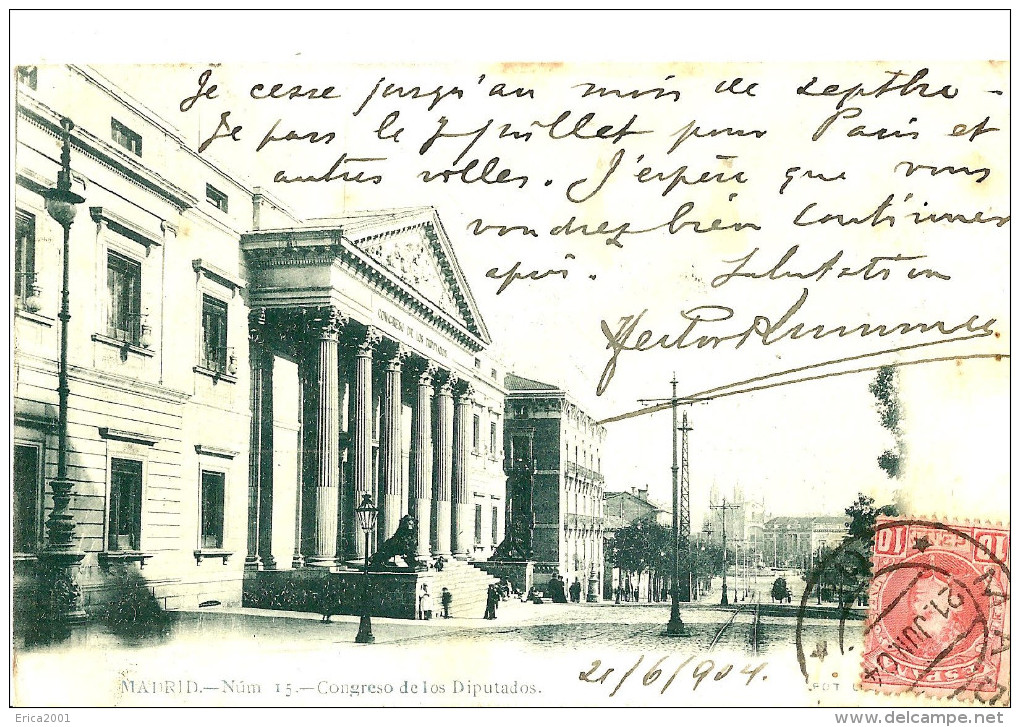 Je cesse jusqu'au mois de septbre -
Je pars le 7 Juillet pour Paris et
autres villes. J'espère que vous
voudrez bien continuer
après. Salutation
Hector
CONGRESO DE LOS DIPUTADOS
10 CENT 10
21 JUN 04
MADRID.—Núm 15.—Congreso de los Diputados.
21/6/904
FOT
© Erica2001
http://www.delcampe.net